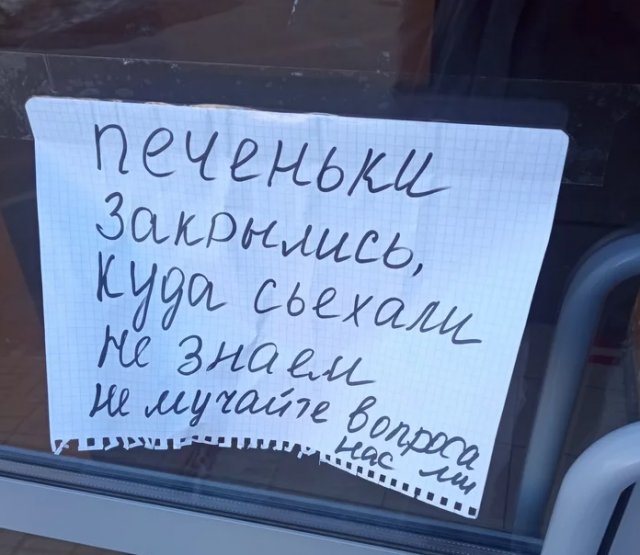 печеньки
закрылись,
куда сьехали
не знаем
не мучайте вопроса
нас ми